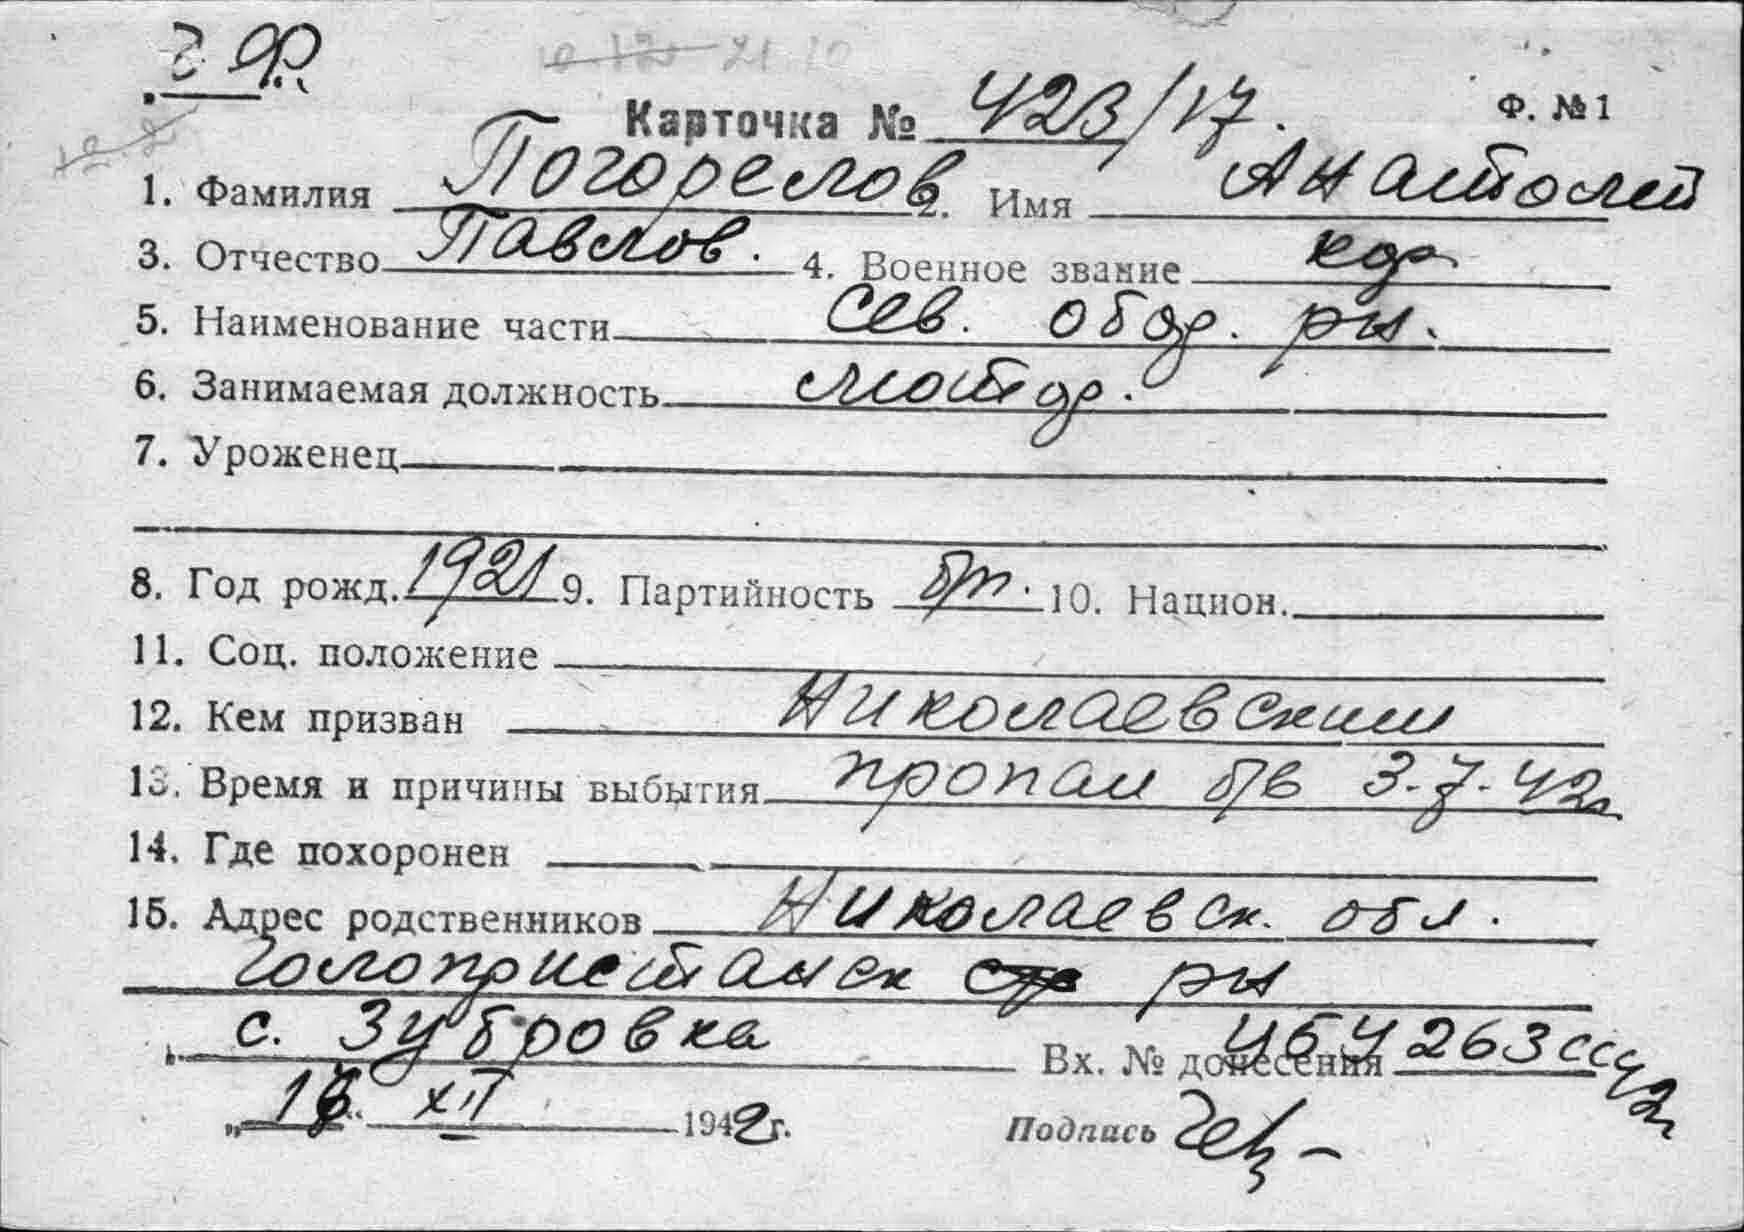 Ч Ф.
Карточка № 423/17. Ф. №1
1. Фамилия Погорелов 2. Имя Анатолей
3. Отчество Павлов. 4. Военное звание кр
5. Наименование части Сев. об ор. рн.
6. Занимаемая должность
7. Уроженец
8. Год рожд. 1921 9. Партийность б/п. 10. Национ.
11. Соц. положение
12. Кем призван Николаевским
13. Время и причины выбытия пропал б/в 3.7.42г
14. Где похоронен
15. Адрес родственников Николаевск. обл.
Голопристанск рн
с. Зубровка
Вх. № донесения 263сс 42г
XII 1942г.
Подпись